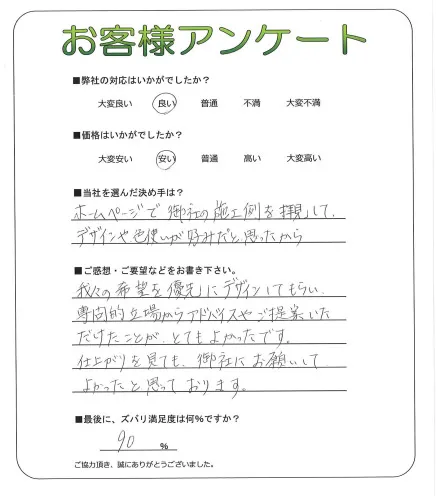 お客様アンケート
■弊社の対応はいかがでしたか?
大変良い 良い 普通 不満 大変不満
■価格はいかがでしたか?
大変安い 安い 普通 高い 大変高い
■当社を選んだ決め手は?
ホームページで御社の施工例を拝見して、
デザインや色使いが好みだと思ったから
■ご感想・ご要望などをお書き下さい。
我々の希望を優先にデザインしてもらい、
専門的立場からアドバイスやご提案いた
だけたことが、とてもよかったです。
仕上がりを見ても、御社にお願いして
よかったと思っております。
■最後に、ズバリ満足度は何%ですか?
90 %
ご協力頂き、誠にありがとうございました。